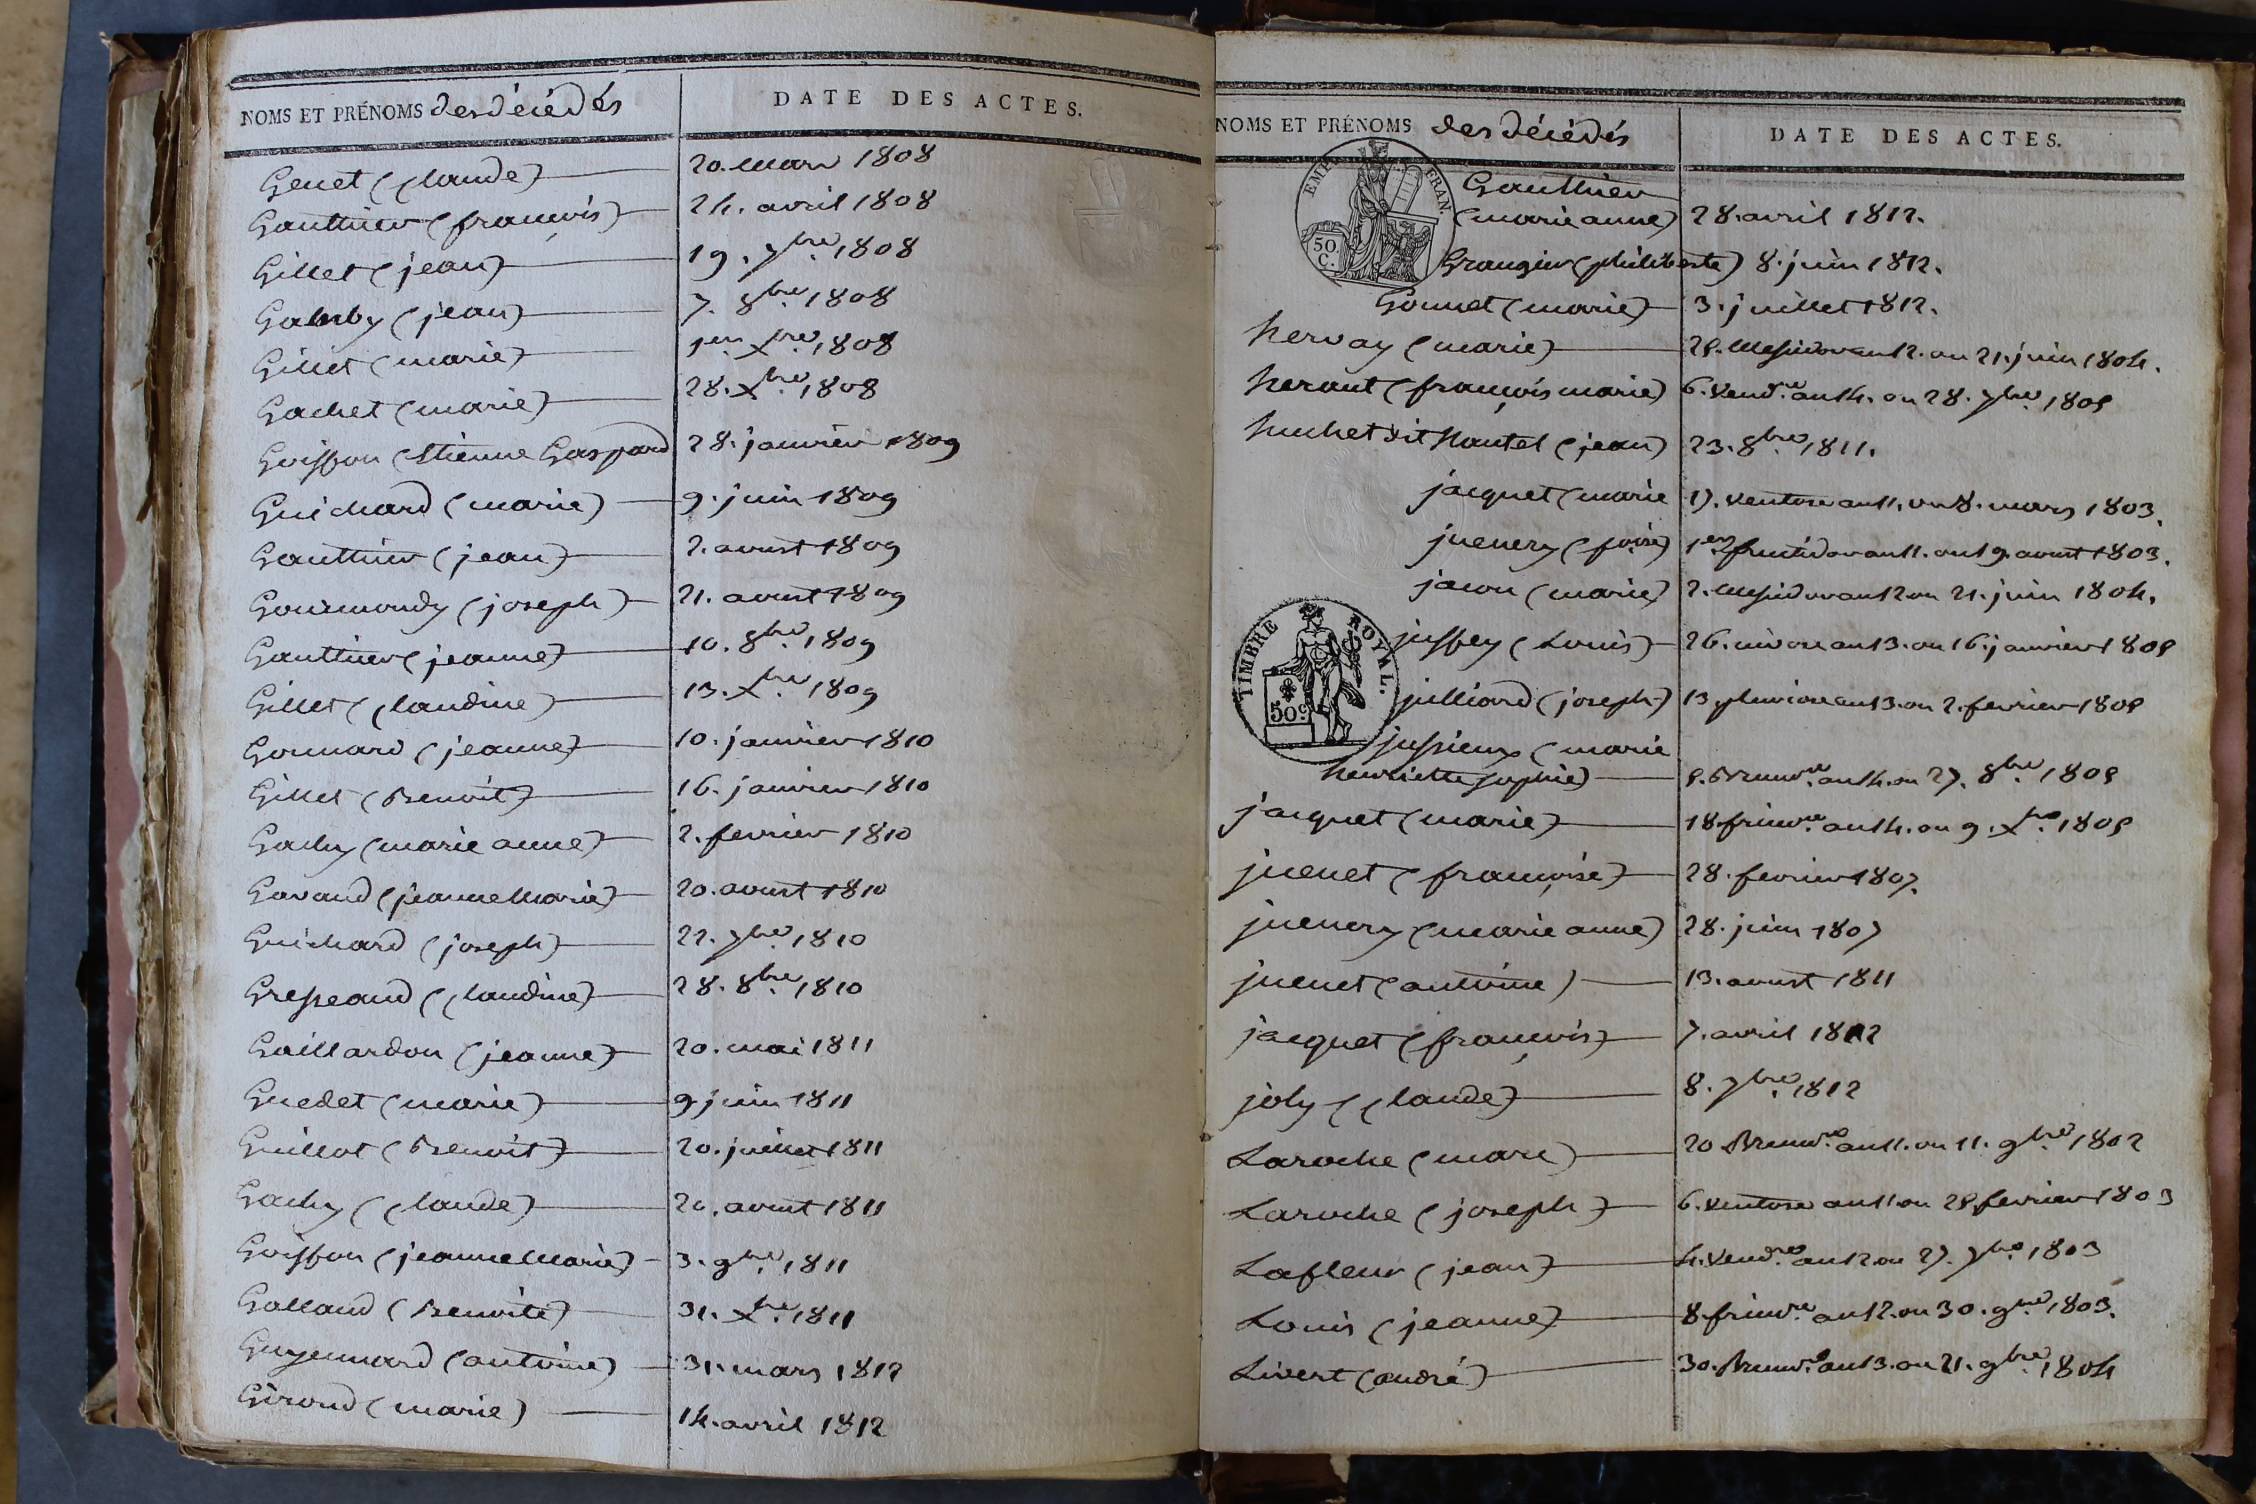 NOMS ET PRÉNOMS des décédés
DATE DES ACTES.
Genet (Claude) 20. mars 1808
Gauthier (françois) 24. avril 1808
Gillet (jean) 19. 7bre. 1808
(jean) 7. 8bre. 1808
Gillet (marie) 1er. Xbre. 1808
Gachet (marie) 28. Xbre. 1808
Goiffon (Etienne Gaspard 28. janvier 1809
Guichard (marie) 9. juin 1809
Gauthier (jean) 2. aoust 1809
Gourmondy (joseph) 21. aoust 1809
Gauthier (jeanne) 10. 8bre. 1809
Gillet (Claudine) 13. Xbre. 1809
Gonnard (jeanne) 10. janvier 1810
Gillet (Benoit) 16. janvier 1810
Gachy (marie anne) 2. fevrier 1810
Gavand (jeanne Marie) 20. aoust 1810
Guichard (joseph) 22. 7bre. 1810
Greppeaud (Claudine) 28. 8bre. 1810
Gaillardon (jeanne) 20. mai 1811
Guedet (marie) 9. juin 1811
Guillot (Benoit) 20. juillet 1811
Gachy (Claude) aoust 1811
Goiffon (jeanne Marie) 3. 9bre. 1811
Galland (Benoite) 31. Xbre. 1811
Guyennard (antoine) 31. mars 1812
Giroud (marie) 14. avril 1812
NOMS ET PRÉNOMS des décédés
DATE DES ACTES.
EMP. FRAN.
50
C.
Gauthier
(marie anne) 28. avril 1812.
Grangier (philiberte) 8. juin 1812.
Gonnet (marie) 3. juillet 1812.
hervay (marie) Messidor an 12. ou 21. juin 1804.
heraut (françois marie) 6. Vendre. an 14. ou 28. 7bre. 1805
huchet dit Nantet (jean) 23. 8bre. 1811.
jacquet (marie 17. ventose an 11. ou 8. mars 1803.
juenery (foise) 1er. fructidor an 11. ou 19. aoust 1803.
jacou (marie) 2. Messidor an 12 ou 21. juin 1804.
TIMBRE ROYAL.
50c
jussey (Louis) 26. nivose an 13. ou 16. janvier 1805
julliard (joseph) 13 pluviose an 13. ou 2. fevrier 1805
jussieux (marie
henriette sophie) 5. Brumre. an 14. ou 27. 8bre. 1805
jacquet (marie) 18 frimre. an 14. ou 9. Xbre. 1805
juenet (françoise) 28. fevrier 1807.
juenery (marie anne) 28. juin 1807
juenet (antoine) 13. aoust 1811
jacquet (françois) 7. avril 1812
joly (Claude) 8. 7bre. 1812
Laroche (marc) 20 Brumre. an 11. ou 11. 9bre. 1802
Laroche (joseph) 6. Ventose an 11 ou 25 fevrier 1803
Lafleur (jean) 4. Vendre. an 12 ou 27. 7bre. 1803
Louis (jeanne) 8 frimre. an 12. ou 30. 9bre. 1803.
Livert (andré) 30. Brumre. an 13. ou 21. 9bre. 1804